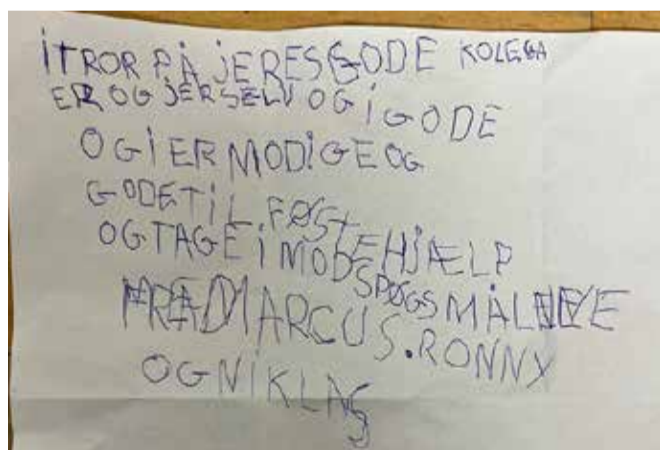 İTROR PÅ JERES GODE KOLEGA
ER OG JERSELV OG İ GODE
OG İ ER MODİGE OG
GODE TİL FØSTE
OG TAGE İMODE HJÆLP
SPØGSMÅL
FRA MARCUS. RONNY
OG NİKLAS